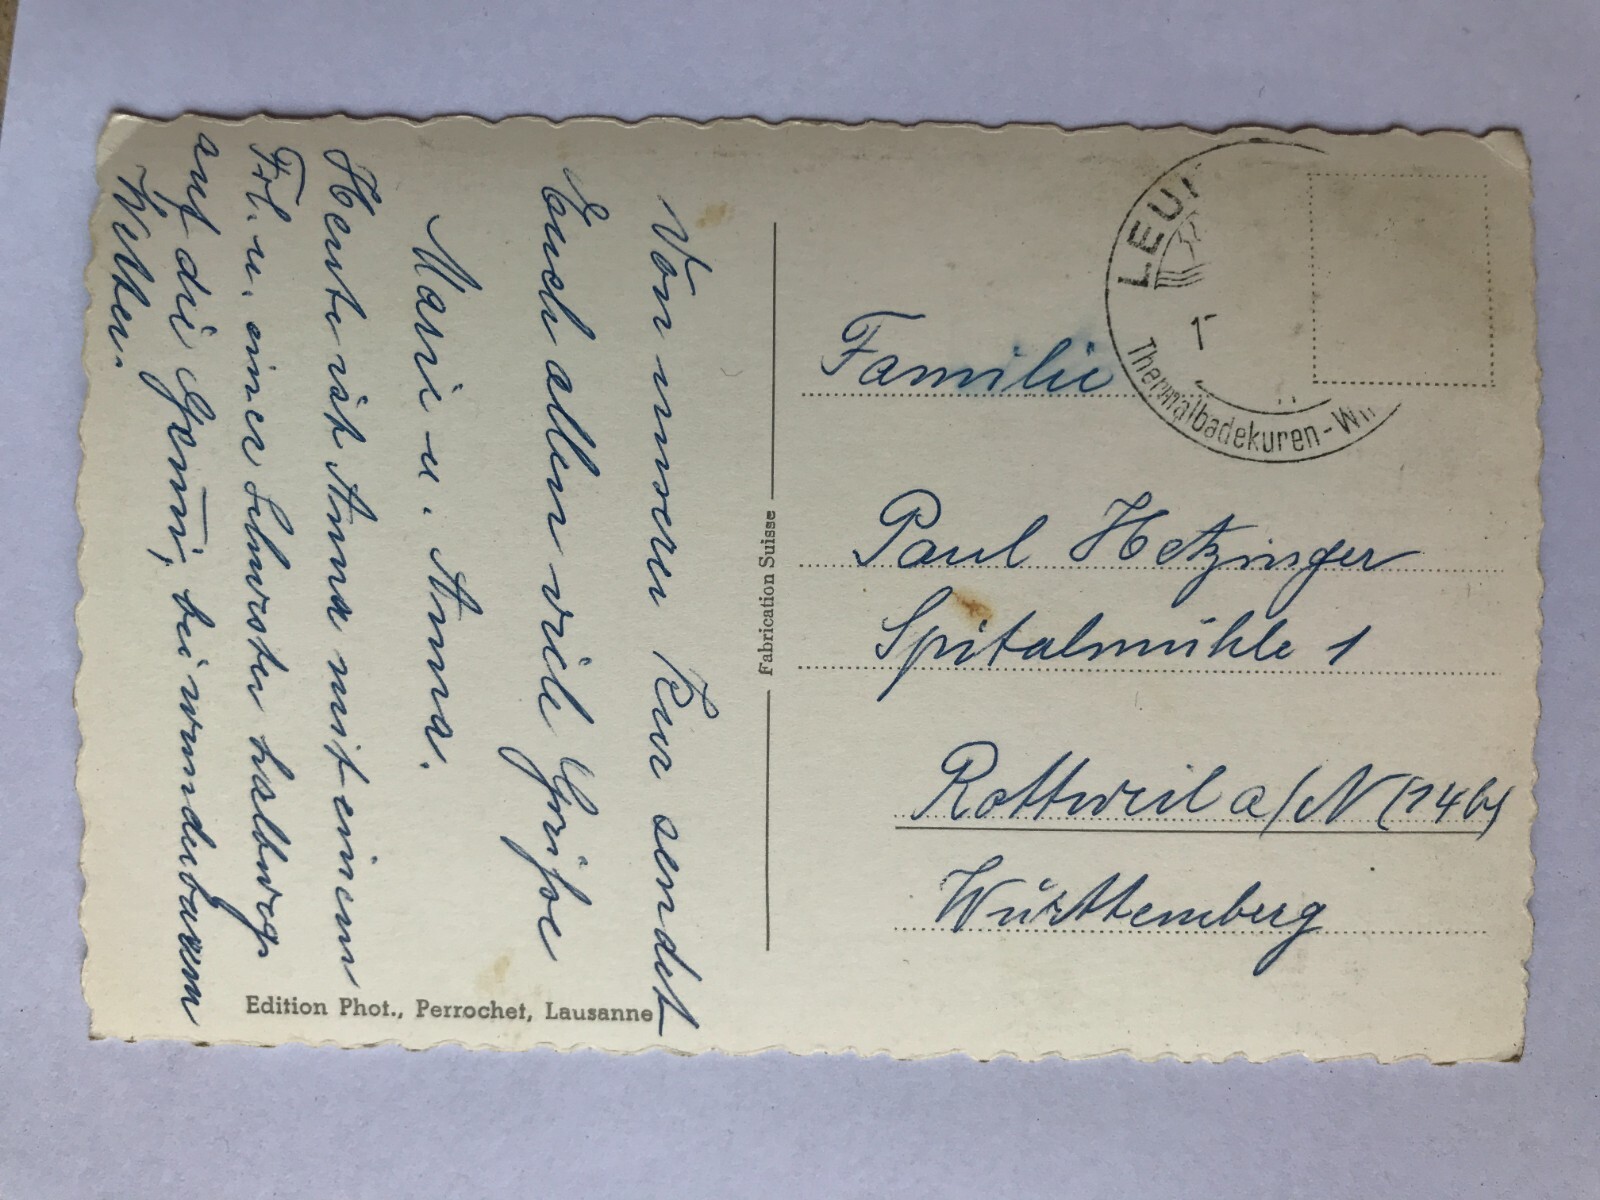 Von unserer Kur sendet
Euch allen viele Grüße
Marie u. Anna.
Heute ist Anna mit einem
Frl. u. einer Schwester halbwegs
auf die Gemmi, bei wunderbarem
Wetter.
Fabrication Suisse
Edition Phot., Perrochet, Lausanne
LEU
1
Thermalbadekuren-W
Familie
Paul Hetzinger
Spitalmühle 1
Rottweil a/N (14b)
Württemberg